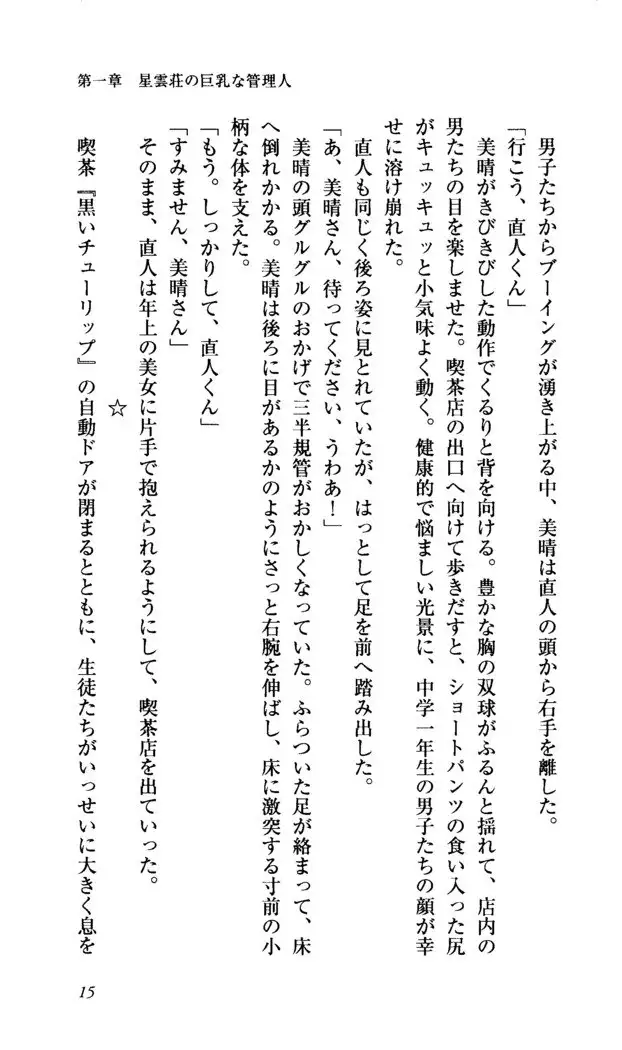 第一章　星雲荘の巨乳な管理人
男子たちからブーイングが湧き上がる中、美晴は直人の頭から右手を離した。
「行こう、直人くん」
美晴がきびきびした動作でくるりと背を向ける。豊かな胸の双球がふるんと揺れて、店内の
男たちの目を楽しませた。喫茶店の出口へ向けて歩きだすと、ショートパンツの食い入った尻
がキュッキュッと小気味よく動く。健康的で悩ましい光景に、中学一年生の男子たちの顔が幸
せに溶け崩れた。
直人も同じく後ろ姿に見とれていたが、はっとして足を前へ踏み出した。
「あ、美晴さん、待ってください、うわあ！」
美晴の頭グルグルのおかげで三半規管がおかしくなっていた。ふらついた足が絡まって、床
へ倒れかかる。美晴は後ろに目があるかのようにさっと右腕を伸ばし、床に激突する寸前の小
柄な体を支えた。
「もう。しっかりして、直人くん」
「すみません、美晴さん」
そのまま、直人は年上の美女に片手で抱えられるようにして、喫茶店を出ていった。
☆
喫茶『黒いチューリップ』の自動ドアが閉まるとともに、生徒たちがいっせいに大きく息を
15